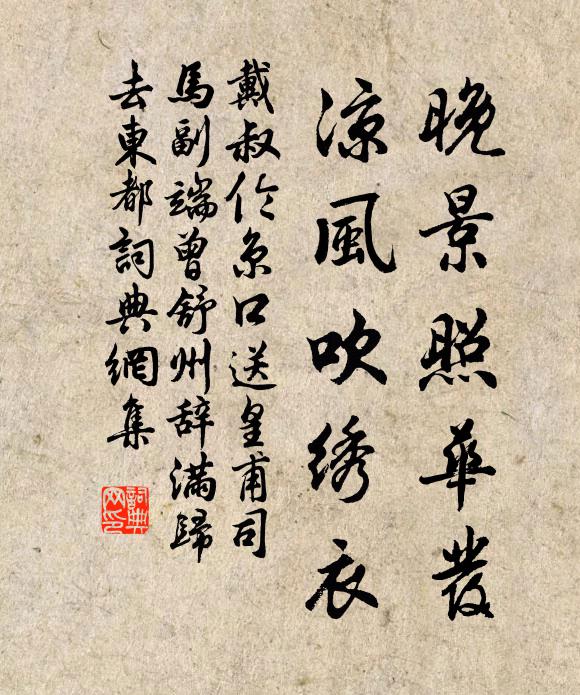 晚景照華發
凉風吹绣衣
戴叔伦京口送皇甫司
馬副端曾舒州辭满歸
去東都詞典網集
詞典
网印